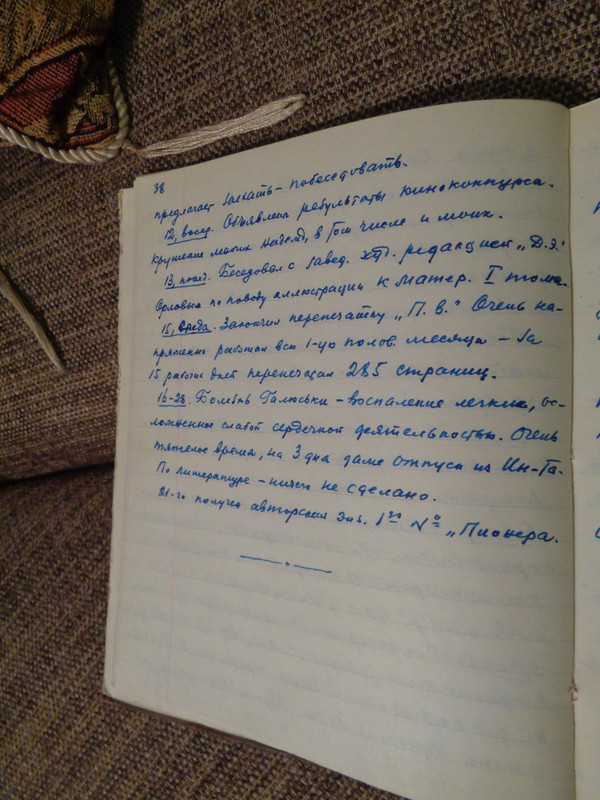 38
предлагает заехать – побеседовать.
12, воскр. Объявлены результаты киноконкурса.
Крушение многих надежд, в том числе и моих.
13, понед. Беседовал с завед. худ. редакцией „Д.Э."
Орловым по поводу иллюстраций к матер. I тома.
15, среда. Закончил перепечатку „П. В." Очень на-
пряженно работал всю 1-ую полов. месяца – за
15 рабочих дней перепечатал 285 страниц.
16-28. Болезнь Галюськи – воспаление легких, ос-
ложненное слабой сердечной деятельностью. Очень
тяжелое время, на 3 дня даже отпуск из Ин-та.
По литературе – ничего не сделано.
21-го получен авторский экз. 1го № „Пионера.